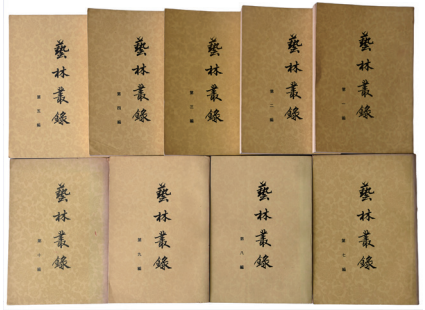 藝林叢錄
第一編
藝林叢錄
第二編
藝林叢錄
第三編
藝林叢錄
第四編
藝林叢錄
第五編
藝林叢錄
第七編
藝林叢錄
第八編
藝林叢錄
第九編
藝林叢錄
第十編